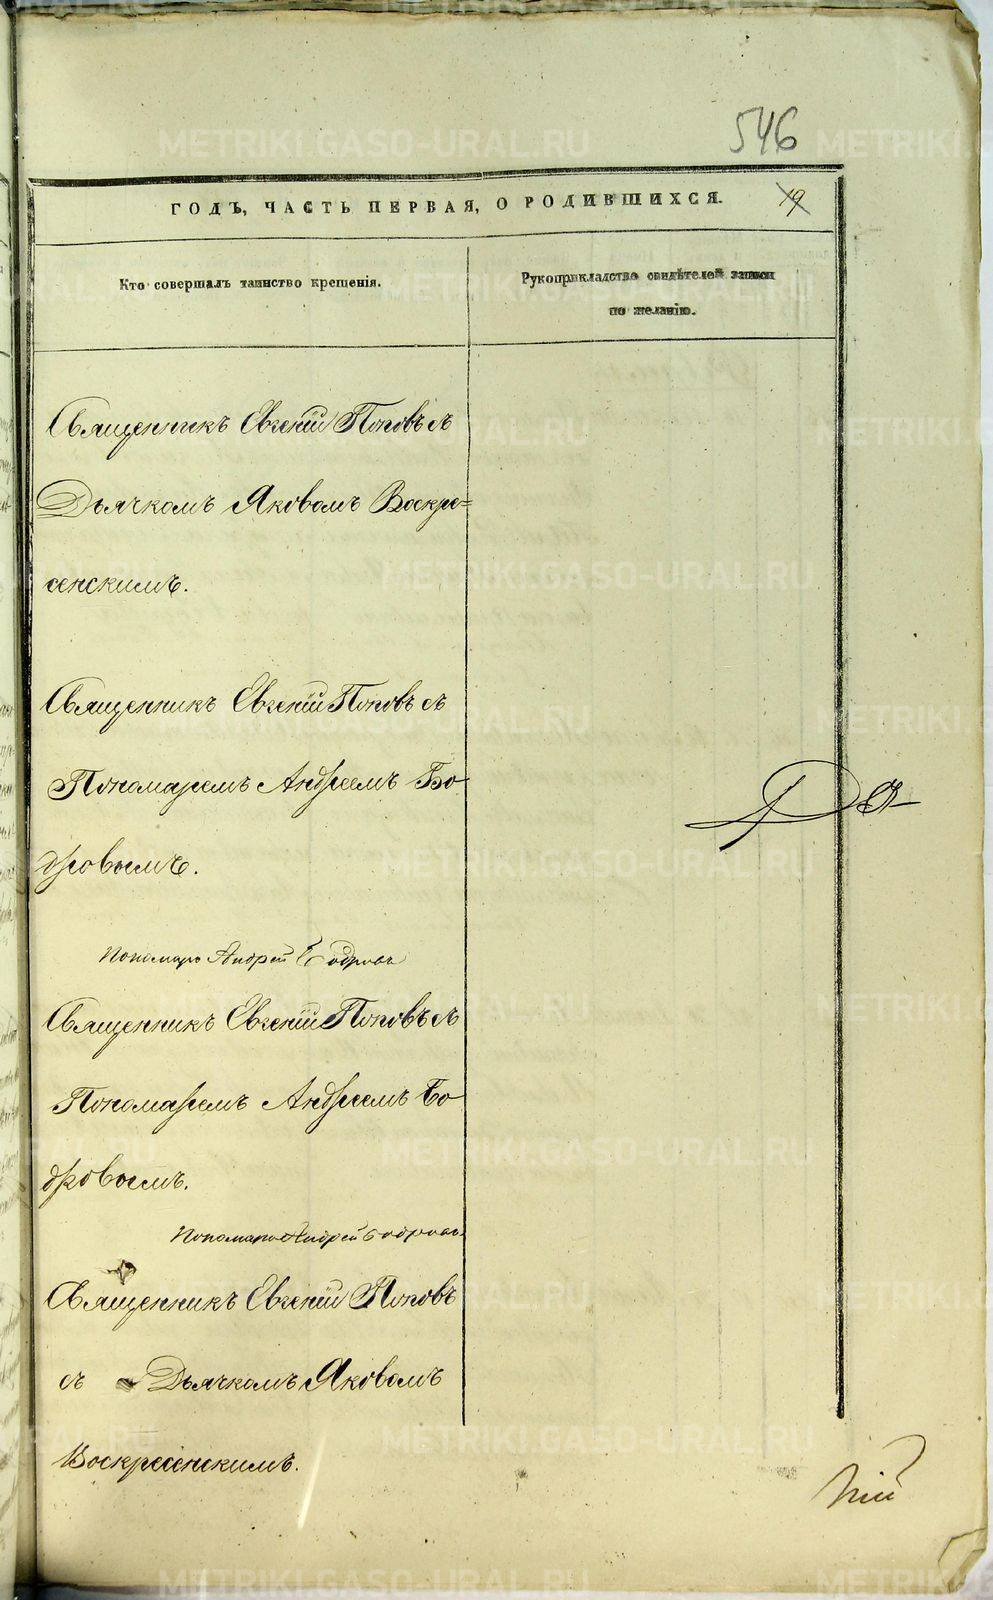 546
ГОДЪ, ЧАСТЬ ПЕРВАЯ, О РОДИВШИХСЯ. 19
Кто совершалъ таинство крещенія.
Рукоприкладство свидѣтелей записи
по желанію.
Священникъ Евгеній Поповъ съ
Дьячкомъ Яковомъ Воскре=
сенскимъ.
Священникъ Евгеній Поповъ съ
Пономаремъ Андреемъ Бо-
дровымъ.
До
Пономарь Андрей Бодровъ
Священникъ Евгеній Поповъ съ
Пономаремъ Андреемъ Бо
дровымъ.
Пономарь Андрей Бодровъ
Священникъ Евгеній Поповъ
съ Дьячкомъ Яковомъ
Воскресенскимъ.
METRIKI.GASO-URAL.RU